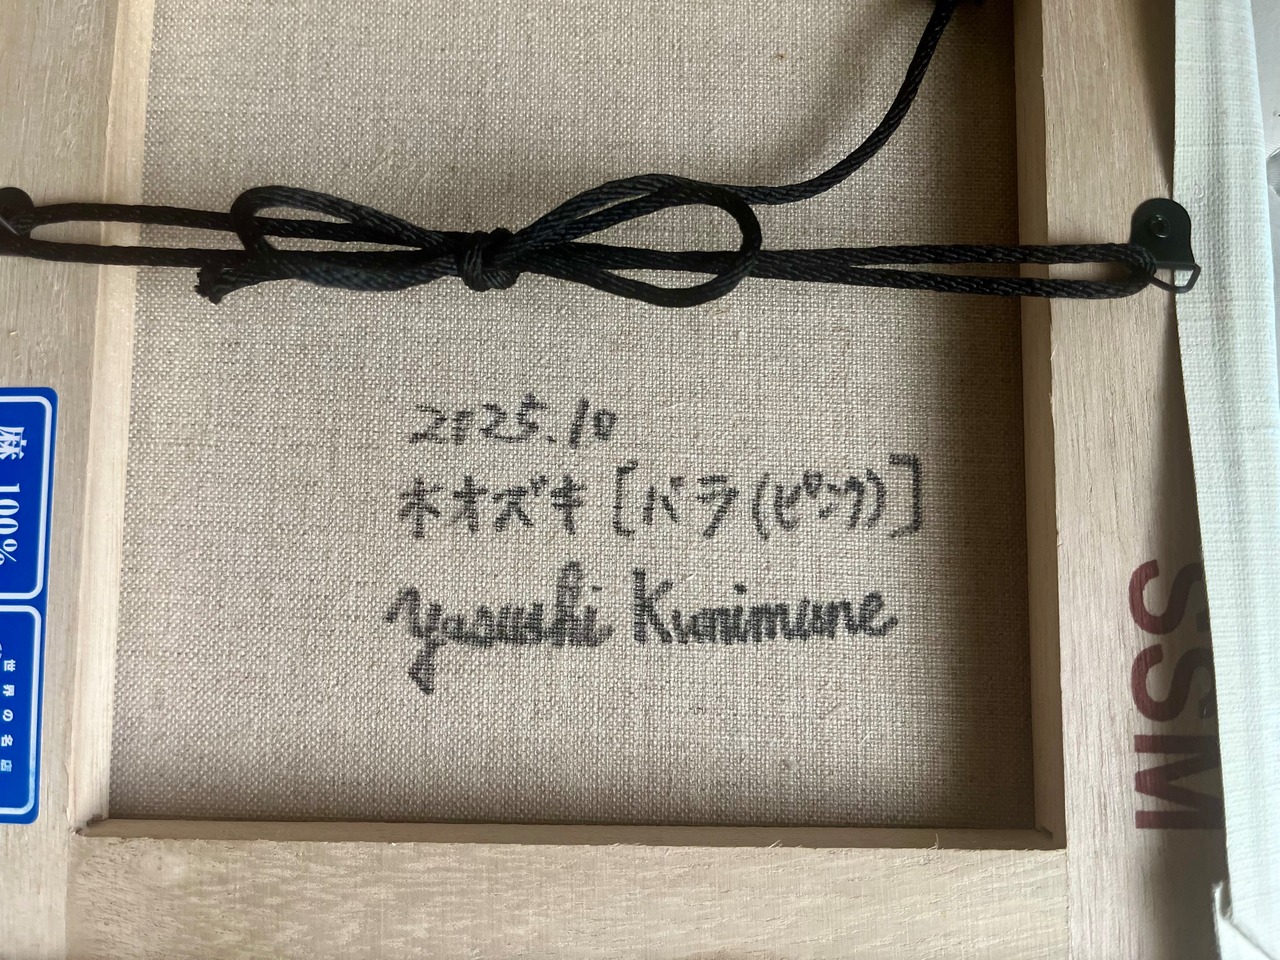 2025.10
ホオズキ［バラ(ピンク)］
Yasushi Kunimune
麻 100%
世界の名店
SSM